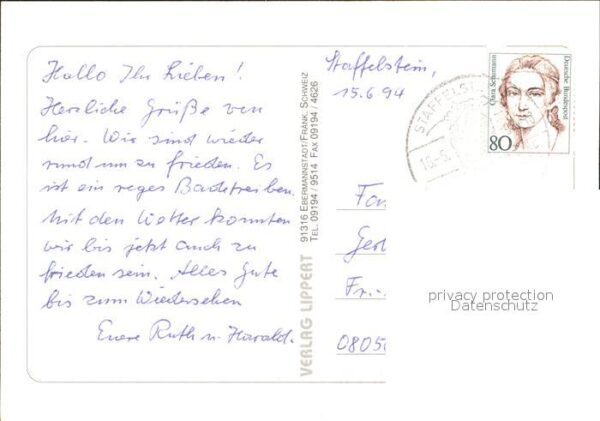 Hallo Ihr Lieben!
Herzliche Grüße von
hier. Wir sind wieder
rund um zu frieden. Es
ist ein reges Badetreiben.
Mit dem Wetter konnten
wir bis jetzt auch zu
frieden sein. Alles Gute
bis zum Wiedersehen
Euere Ruth u. Harald.
VERLAG LIPPERT
91316 EBERMANNSTADT/FRÄNK. SCHWEIZ
TEL. 09194 / 9514 FAX 09194 / 4626
Staffelstein,
15.6.94
STAFFELST
Clara Schumann
Deutsche Bundespost
80
Fa
Ger
Fr.
0805
privacy protection
Datenschutz